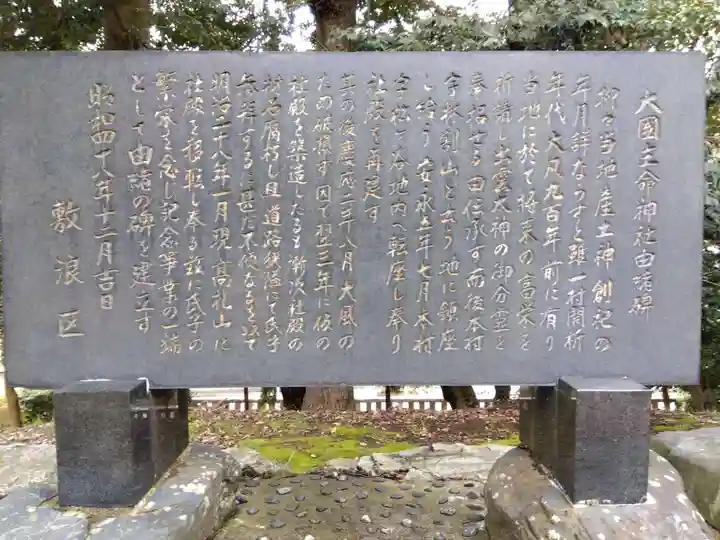 大國主命神社由緒碑
抑々当地産土神創祀の
年月詳ならずと雖一村開祈
年代大凡九百年前に有り
当地に於て将来の富栄を
祈請し出雲大神の御分霊を
奉招せる由伝承す而後本村
字杯割山と云う地に鎮座
し給う安永五年七月本村
字松ヶ谷地内へ転座し奉り
社殿を再建す
其の後慶応二年八月大風の
ため破損す因て翌三年に仮の
社殿を築造したるも漸次社殿の
材名腐朽し且道路狭隘にて氏子
参拝するに甚だ不便なるを以て
明治二十八年一月現高札山に
社殿を移転し奉る茲に氏子の
繁栄を念じ記念事業の一端
として由緒の碑を建立す
昭和四十八年十二月吉日
敷浪区